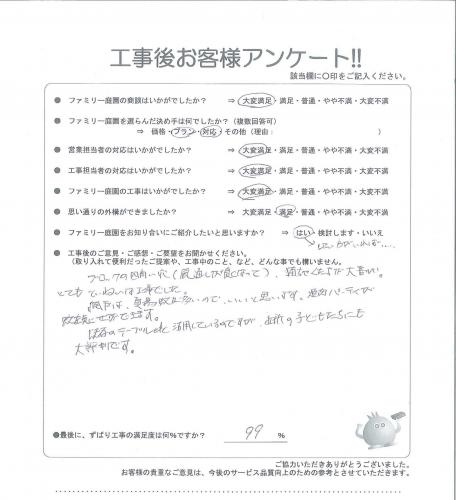 工事後お客様アンケート!!
該当欄に○印をご記入ください。
● ファミリー庭園の商談はいかがでしたか? ⇒ 大変満足・満足・普通・やや不満・大変不満
● ファミリー庭園を選らんだ決め手は何でしたか?(複数回答可)
⇒ 価格・プラン・対応・その他(理由: )
● 営業担当者の対応はいかがでしたか? ⇒ 大変満足・満足・普通・やや不満・大変不満
● 工事担当者の対応はいかがでしたか? ⇒ 大変満足・満足・普通・やや不満・大変不満
● ファミリー庭園の工事はいかがでしたか? ⇒ 大変満足・満足・普通・やや不満・大変不満
● 思い通りの外構ができましたか? ⇒ 大変満足・満足・普通・やや不満・大変不満
● ファミリー庭園をお知り合いにご紹介したいと思いますか? ⇒ はい・検討します・いいえ
● 工事後のご意見・ご感想・ご要望をお聞かせください。
(取り入れて便利だったご提案や、工事中のこと、など、どんな事でも構いません。
ブロックの
とても ていねいな工事でした。
いいと思います。
のテーブル 活用しているのですが、 の子どもたちにも
大評判です。
●最後に、ずばり工事の満足度は何%ですか? 99 %
ご協力いただきありがとうございました。
お客様の貴重なご意見は、今後のサービス品質向上のための参考とさせていただきます。